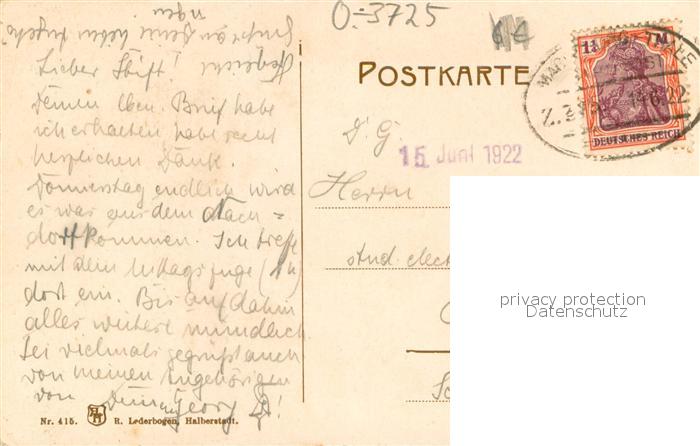 O÷3725
Lieber Stift!
Deinen lben. Brief habe
ich erhalten habe recht
herzlichen Dank.
Donnerstag endlich wird
es was aus dem Nach=
dortkommen. Ich treffe
mit dem Mittagszuge
dort ein. Bis auf dahin
alles weitere mündlich
Sei vielmals gegrüßt auch
von meinen Angehörigen
von Deinem Georg
Nr. 415.
R. Lederbogen, Halberstadt.
POSTKARTE
1¼ M
DEUTSCHES REICH
D. G.
15. Juni 1922
Herrn
stud. elect
privacy protection
Datenschutz